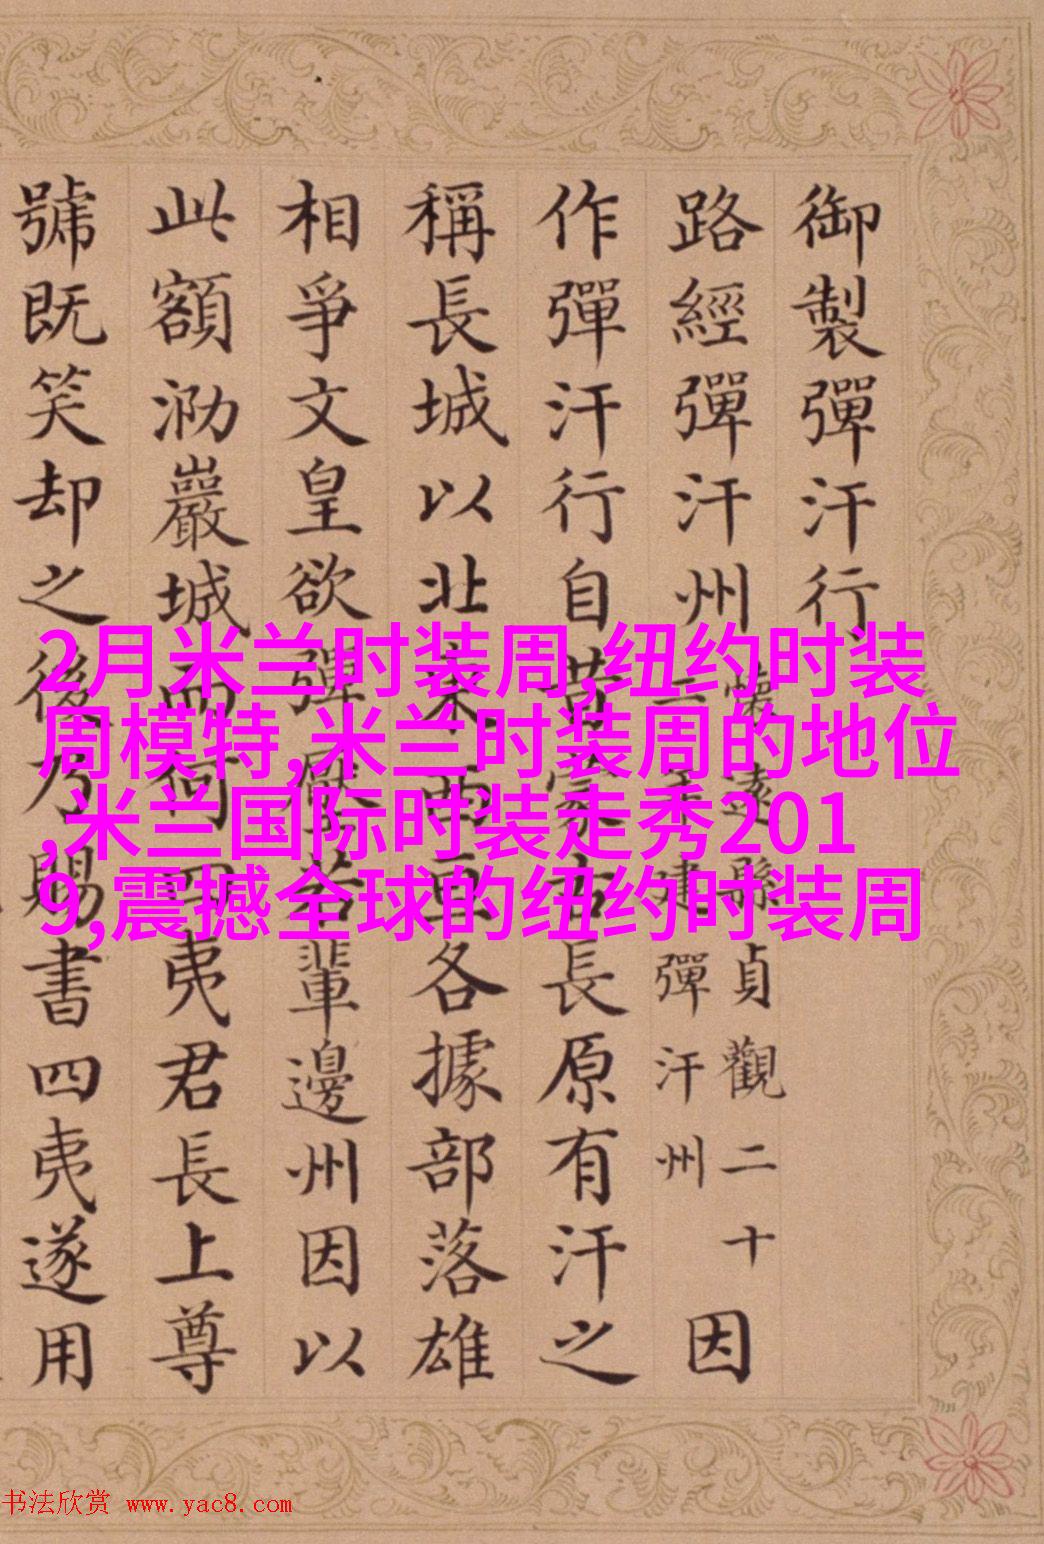 御製彈汗行
路經彈汗州
懷遠縣貞觀二十
二年建彈汗州
因
作彈汗行自昔蒙古長原有汗之
稱長城以北東西亘各據部落雄
相爭文皇欲彈壓若輩邊州因以
此額泐巖城而何四夷君長上尊
號既笑却之後乃賜書四夷遂用
2月米兰时装周,纽约时装
周模特,米兰时装周的地位
,米兰国际时装走秀201
9,震撼全球的纽约时装周
书法欣赏 www.yac8.com